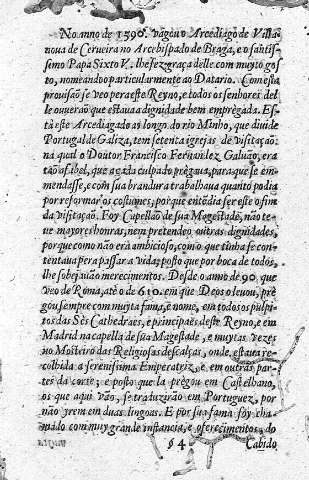 No anno de 1590. vàgou o Arcediago de Villa
noua de Cerueira no Arcebispado de Braga, e o santis-
simo Papa Sixto V. lhe fez graça delle com muyto gos
to, nomeando o particularmente ao Datario. Com esta
prouisão se veo pera este Reyno, e todos os senhores del
le ouuerão que estaua a dignidade bem emprègada. Es-
tà este Arcediàgado as longo do rio Minho, que diuide
Portugal de Galiza, tem setenta igrejas de visitação:
na qual o Doutor Francisco Fernandez Galuão, era
tão afabel, que a cada culpado prègaua, para que se em-
mendasse, e com sua brandura trabalhaua quanto podia
por reformar os costumes, porque entẽdia ser este o fim
da visitação. Foy Capellão de sua Magestade, não te-
ue mayores honras, nem pretendeo outras dignidades,
porque como não era ambicioso, com o que tinha se con-
tentaua pera passar a vida; posto que por boca de todos,
lhe sobejauão merecimentos. Desde o anno de 90. que
veo de Roma, atè o de 610. em que Deos o leuou, prè
gou sempre com muyta fama, e nome, em todos os pulpi-
tos das Sès Cathedraes, e principaes deste Reyno, e em
Madrid na capella de sua Magestade, e muytas vezes
no Mosteiro das Religiosas descalças, onde estaua re-
colhida a serenissima Emperatriz, e em outras par-
tes da corte; e posto que la prègou em Castelhano,
os que aqui vão, se traduzirão em Portuguez, por
não yrem em duas lingoas. E por sua fama foy cha-
mado com muy grande instancia, e oferecimentos, do
§ 4 Cabido